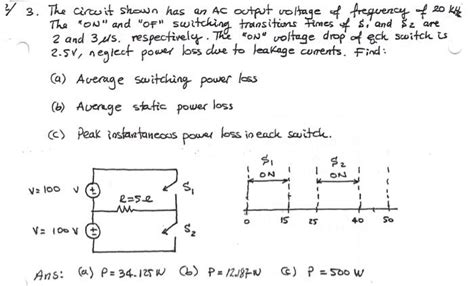 2/ 3. The circuit shown has an AC output voltage of frequency of 20 kHz
The "ON" and "OF" switching transitions times of S1 and S2 are
2 and 3 µs. respectively. The "ON" voltage drop of eck switch is
2.5V, neglect power loss due to leakage currents. Find:
(a) Average switching power loss
(b) Average static power loss
(c) Peak instantaneous power loss in each switch.
S1 S2
ON ON
V=100 V R=5Ω S1
V=100V S2
0 15 25 40 50
Ans: (a) P=34.125W (b) P=12.187W (c) P=500W